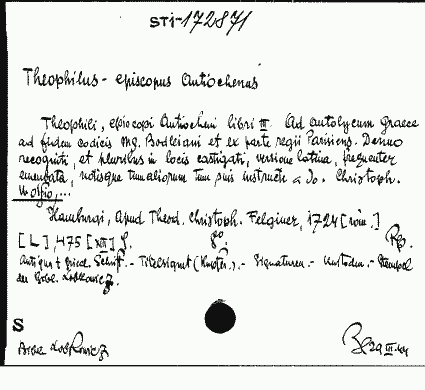 STI-172871
Theophilus - episcopus Antiochenus
Theophili, episcopi Antiocheni libri III. Ad Autolycum Graece
ad fidem codicis Mg. Bodleiani et ex parte regii Parisiens. Denuo
recogniti, et pluribus in locis castigati, versione latina, frequenter
emendata, notisque tum aliorum tum suis instructi a Jo. Christoph.
Wolfio,...
Hamburgi, Apud Theod. Christoph. Felginer, 1724 [röm.]
[L], 475 [XIII] S. 8°. Rg.
Antiqua + Griech. Schrift. - Titelsignet - Signaturen. - Kustoden. - Stempel
der Bibl. Lobkowicz.
S
Bibl. Lobkowicz
29 III